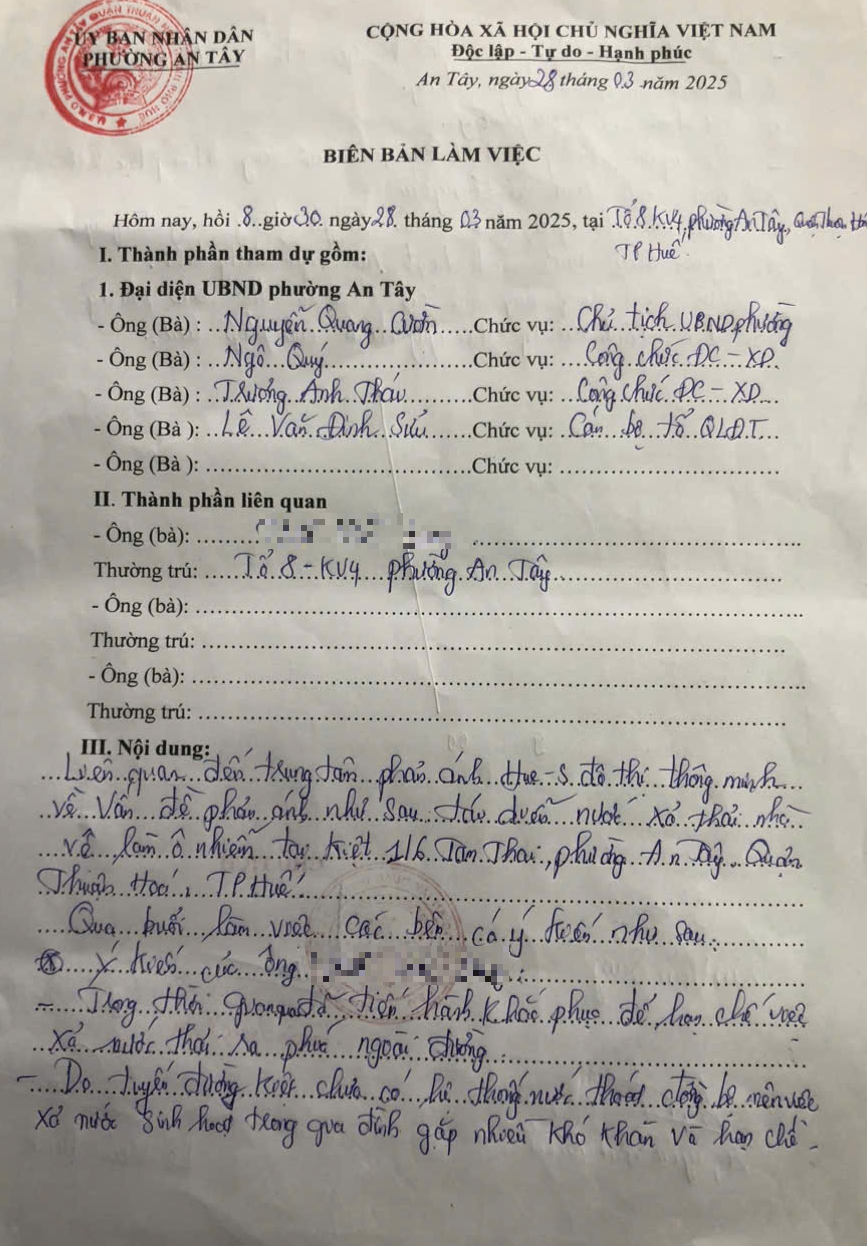 ỦY BAN NHÂN DÂN
PHƯỜNG AN TÂY
CỘNG HÒA XÃ HỘI CHỦ NGHĨA VIỆT NAM
Độc lập - Tự do - Hạnh phúc
An Tây, ngày 28 tháng 03 năm 2025
BIÊN BẢN LÀM VIỆC
Hôm nay, hồi 8 giờ 30 ngày 28 tháng 03 năm 2025, tại Tổ 8 KV4, phường An Tây, Quận Thuận Hóa
TP Huế
I. Thành phần tham dự gồm:
1. Đại diện UBND phường An Tây
- Ông (Bà) : Nguyễn Quang Cườn Chức vụ: Chủ tịch UBND phường
- Ông (Bà) : Ngô Quý Chức vụ: Công chức ĐC - XD
- Ông (Bà) : Trương Anh Chức vụ: Công chức ĐC - XD
- Ông (Bà ): Lê Văn Đình Sửu Chức vụ: Cán bộ tổ QLĐT
- Ông (Bà ): Chức vụ:
II. Thành phần liên quan
- Ông (bà):
Thường trú: Tổ 8 - KV4 phường An Tây
- Ông (bà):
Thường trú:
- Ông (bà):
Thường trú:
III. Nội dung:
Liên quan đến trung tâm phản ánh Hue-S đô thị thông minh
về vấn đề phản ánh như sau nước xả thải nhà
vệ làm ô nhiễm tại kiệt 116 Tam Thai, phường An Tây Quận
Thuận Hoá, TP Huế
Qua buổi làm việc các bên có ý kiến như sau:
Ý kiến của ông :
- Trong thời gian qua đã tiến hành khắc phục để hạn chế việc
xả nước thải ra phía ngoài đường
- Do tuyến đường kiệt chưa có hệ thống nước thoát đồng bộ nên việc
xả nước sinh hoạt trong gia đình gặp nhiều khó khăn và hạn chế.